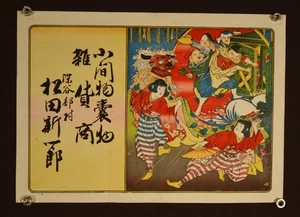 小間物嚢物
雑貨商
深谷部村
松田新一郎